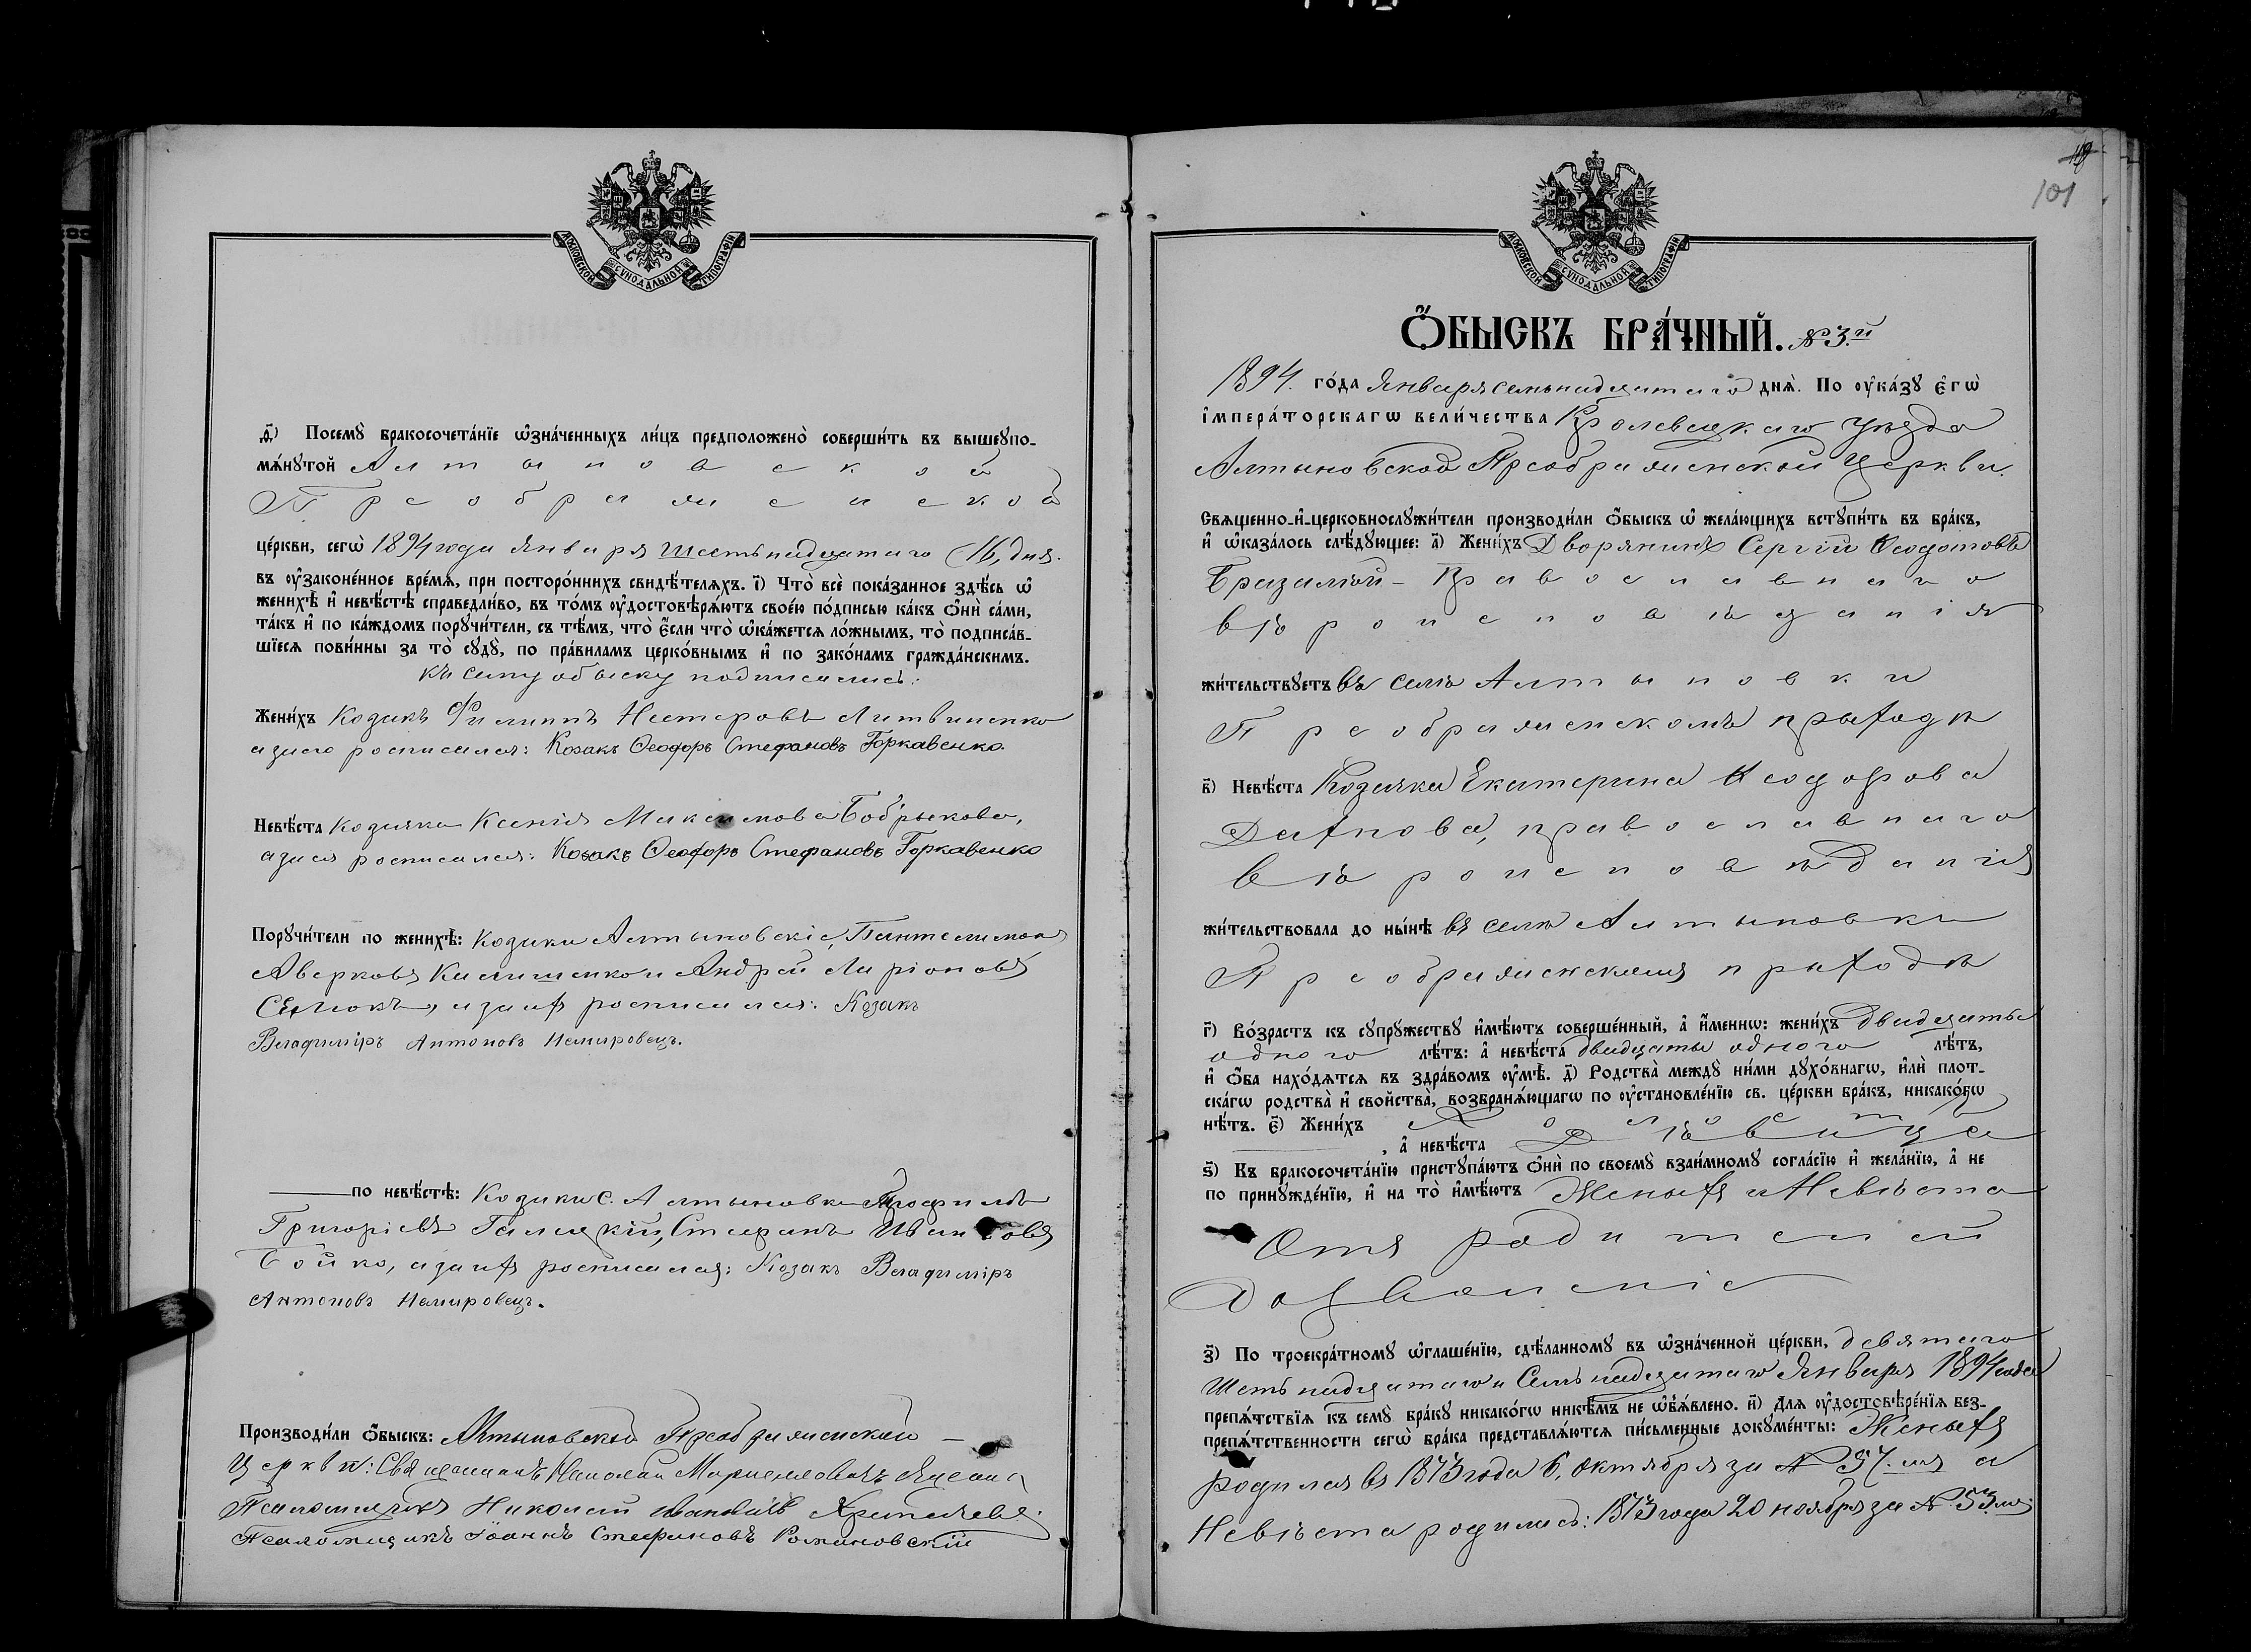 МОСКОВСКОЙ СѴНОДАЛЬНОЙ ТИПОГРАФІИ
д҃) Посемꙋ̀ бракосочета́нїе ѡ҆зна́ченныхъ ли́цъ предположено̀ соверши́ть въ вышеꙋпо-
мѧ́нꙋтой Алтыновской
Преображенской
це́ркви, сегѡ̀ 1894 года Января шестьнадцатаго 16, дня.
въ ᲂу҆законе́нное вре́мѧ, при посторо́ннихъ свидѣ́телѧхъ. і҃) Что̀ всѐ пока́занное здѣ́сь ѡ҆
женихѣ̀ и҆ невѣ́стѣ справедли́во, въ то́мъ ᲂу҆достовѣрѧ́ютъ свое́ю по́дписью ка́къ ѻ҆нѝ са́ми,
та́къ и҆ по ка́ждомъ порꙋчи́тели, съ тѣ́мъ, что̀ є҆́сли что̀ ѡ҆ка́жется ло́жнымъ, то̀ подписа́в-
шїеся пови́нны за то̀ сꙋдꙋ̀, по пра́виламъ церко́внымъ и҆ по зако́намъ гражда́нскимъ.
Къ сему обыску подписались:
Жени́хъ Козакъ Филиппъ Нестеровъ Литвиненко
а за него росписался: Козакъ Ѳеодоръ Стефановъ Горкавенко.
Невѣ́ста козачка Ксенія Максимова Бобрыкова,
а за нея росписался: Козакъ Ѳеодоръ Стефановъ Горкавенко
Порꙋчи́тели по женихѣ̀: Козаки Алтыновскіе, Пантелимонъ
Аверковъ и Андрей Ларіоновъ
а за нихъ росписался: Козакъ
Владиміръ Антоновъ Немировецъ.
по невѣ́стѣ: Козаки с. Алтыновки Трофимъ
Григоріевъ Галицкій, Стефанъ Ивановъ
Бойко, а за нихъ росписался: Козакъ Владиміръ
Антоновъ Немировецъ.
Производи́ли ѻ҆́быскъ: Алтыновской Преображенской
Церкви: Священникъ Николай
Псаломщикъ Николай
Псаломщикъ Іоаннъ Стефановъ Романовскій
101
МОСКОВСКОЙ СѴНОДАЛЬНОЙ ТИПОГРАФІИ
Ѻ҆́БЫСКЪ БРА́ЧНЫЙ. № 3.й
1894. го́да Января семьнадцатаго днѧ̀. По ᲂу҆ка́зꙋ є҆гѡ̀
і҆мпера́торскагѡ вели́чества Кролевецкаго уѣзда
Алтыновской Преображенской Церкви.
Свѧщенно-и҆-церковнослꙋжи́тели производи́ли ѻ҆́быскъ ѡ҆ жела́ющихъ встꙋпи́ть въ бра́къ,
и҆ ѡ҆каза́лось слѣ́дꙋющее: а҃) Жени́хъ Дворянинъ Сергій Ѳеодотовъ
Бразалюй - Православнаго
вѣроисповѣданія
жи́тельствꙋетъ въ селѣ Алтыновки
Преображенскомъ приходѣ
в҃) Невѣ́ста Козачка Екатерина Ѳеодорова
Дахнова, православнаго
вѣроисповѣданія
жи́тельствовала до ны́нѣ въ селѣ Алтыновки
Преображенскомъ приходѣ
г҃) Во́зрастъ къ сꙋпрꙋ́жествꙋ и҆мѣ́ютъ соверше́нный, а҆ и҆́меннѡ: жени́хъ Двадцать
одного лѣ́тъ: а҆ невѣ́ста двадцать одного лѣ́тъ,
и҆ ѻ҆́ба нахо́дѧтсѧ въ здра́вомъ ᲂу҆мѣ̀. д҃) Родства̀ междꙋ̀ ни́ми дꙋхо́внагѡ, и҆лѝ плот-
ска́гѡ родства̀ и҆ свойства̀, возбранѧ́ющагѡ по ᲂу҆становле́нїю св. це́ркви бра́къ, никако́гѡ
нѣ́тъ. є҃) Жени́хъ Холостъ
, а҆ невѣ́ста Дѣвица
ѕ҃) Къ бракосочета́нїю пристꙋпа́ютъ ѻ҆нѝ по своемꙋ̀ взаи́мномꙋ согла́сїю и҆ жела́нїю, а҆ не
по принꙋжде́нїю, и҆ на то̀ и҆мѣ́ютъ Женихъ и Невѣста
Отъ родителей
Дозволеніе
з҃) По троекра́тномꙋ ѡ҆глаше́нїю, сдѣ́ланномꙋ въ ѡ҆зна́ченной це́ркви, девятаго
Шестьнадцатаго и Семьнадцатаго Января 1894 года
препѧ́тствїѧ къ семꙋ̀ бра́кꙋ никако́гѡ никѣ́мъ не ѡ҆б̾ѧ́влено. и҃) Для ᲂу҆достовѣре́нїѧ без-
препѧ́тственности сегѡ̀ бра́ка представлѧ́ются пи́сьменные докꙋме́нты: Женихъ
родился въ 1873 года 6. Октября за № 37.мъ а
Невѣста родилась: 1873 года 20 ноября за № 53.мъ